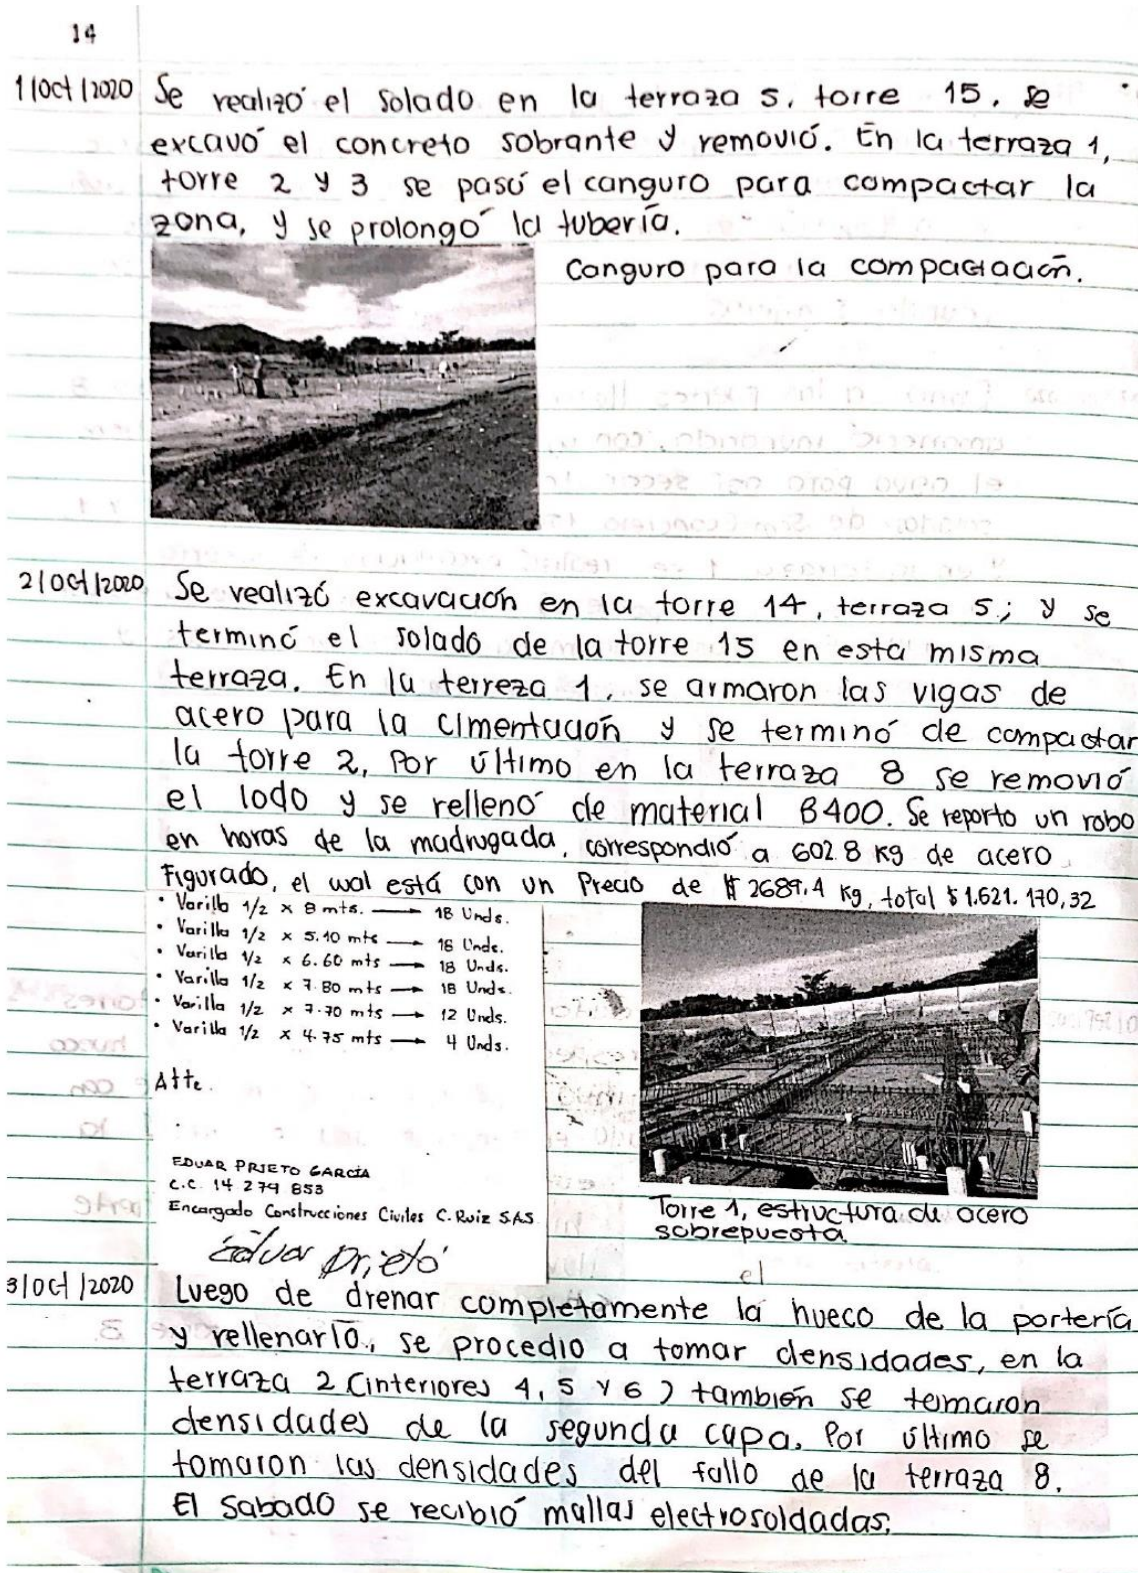 14
1/Oct/2020 Se realizó el solado en la terraza 5, torre 15, se
excavó el concreto sobrante y removió. En la terraza 1,
torre 2 y 3 se pasó el canguro para compactar la
zona, y se prolongó la tubería.
Canguro para la compactación.
2/Oct/2020 Se realizó excavación en la torre 14, terraza 5; y se
terminó el solado de la torre 15 en esta misma
terraza. En la terreza 1, se armaron las vigas de
acero para la cimentación y se terminó de compactar
la torre 2, Por último en la terraza 8 se removió
el lodo y se rellenó de material B400. Se reporto un robo
en horas de la madrugada, correspondió a 602.8 Kg de acero
Figurado, el wal está con un Precio de $ 2689.4 Kg, total $ 1.621.170,32
• Varilla 1/2 x 8 mts. → 18 Unds.
• Varilla 1/2 x 5.10 mts → 18 Unds.
• Varilla 1/2 x 6.60 mts → 18 Unds.
• Varilla 1/2 x 7.80 mts → 18 Unds.
• Varilla 1/2 x 7.70 mts → 12 Unds.
• Varilla 1/2 x 4.75 mts → 4 Unds.
Atte.
EDUAR PRIETO GARCÍA
C.C. 14 279 853
Encargado Construcciones Civiles C. Ruiz S.A.S.
Eduar Prieto
Torre 1, estructura de acero
sobrepuesta.
el
3/Oct/2020 Luego de drenar completamente la hueco de la portería
y rellenarlo, se procedio a tomar densidades, en la
terraza 2 (interiores 4, 5 y 6) también se tomaron
densidades de la segunda capa. Por último se
tomaron las densidades del fallo de la terraza 8.
El sabado se recibió mallas electrosoldadas.